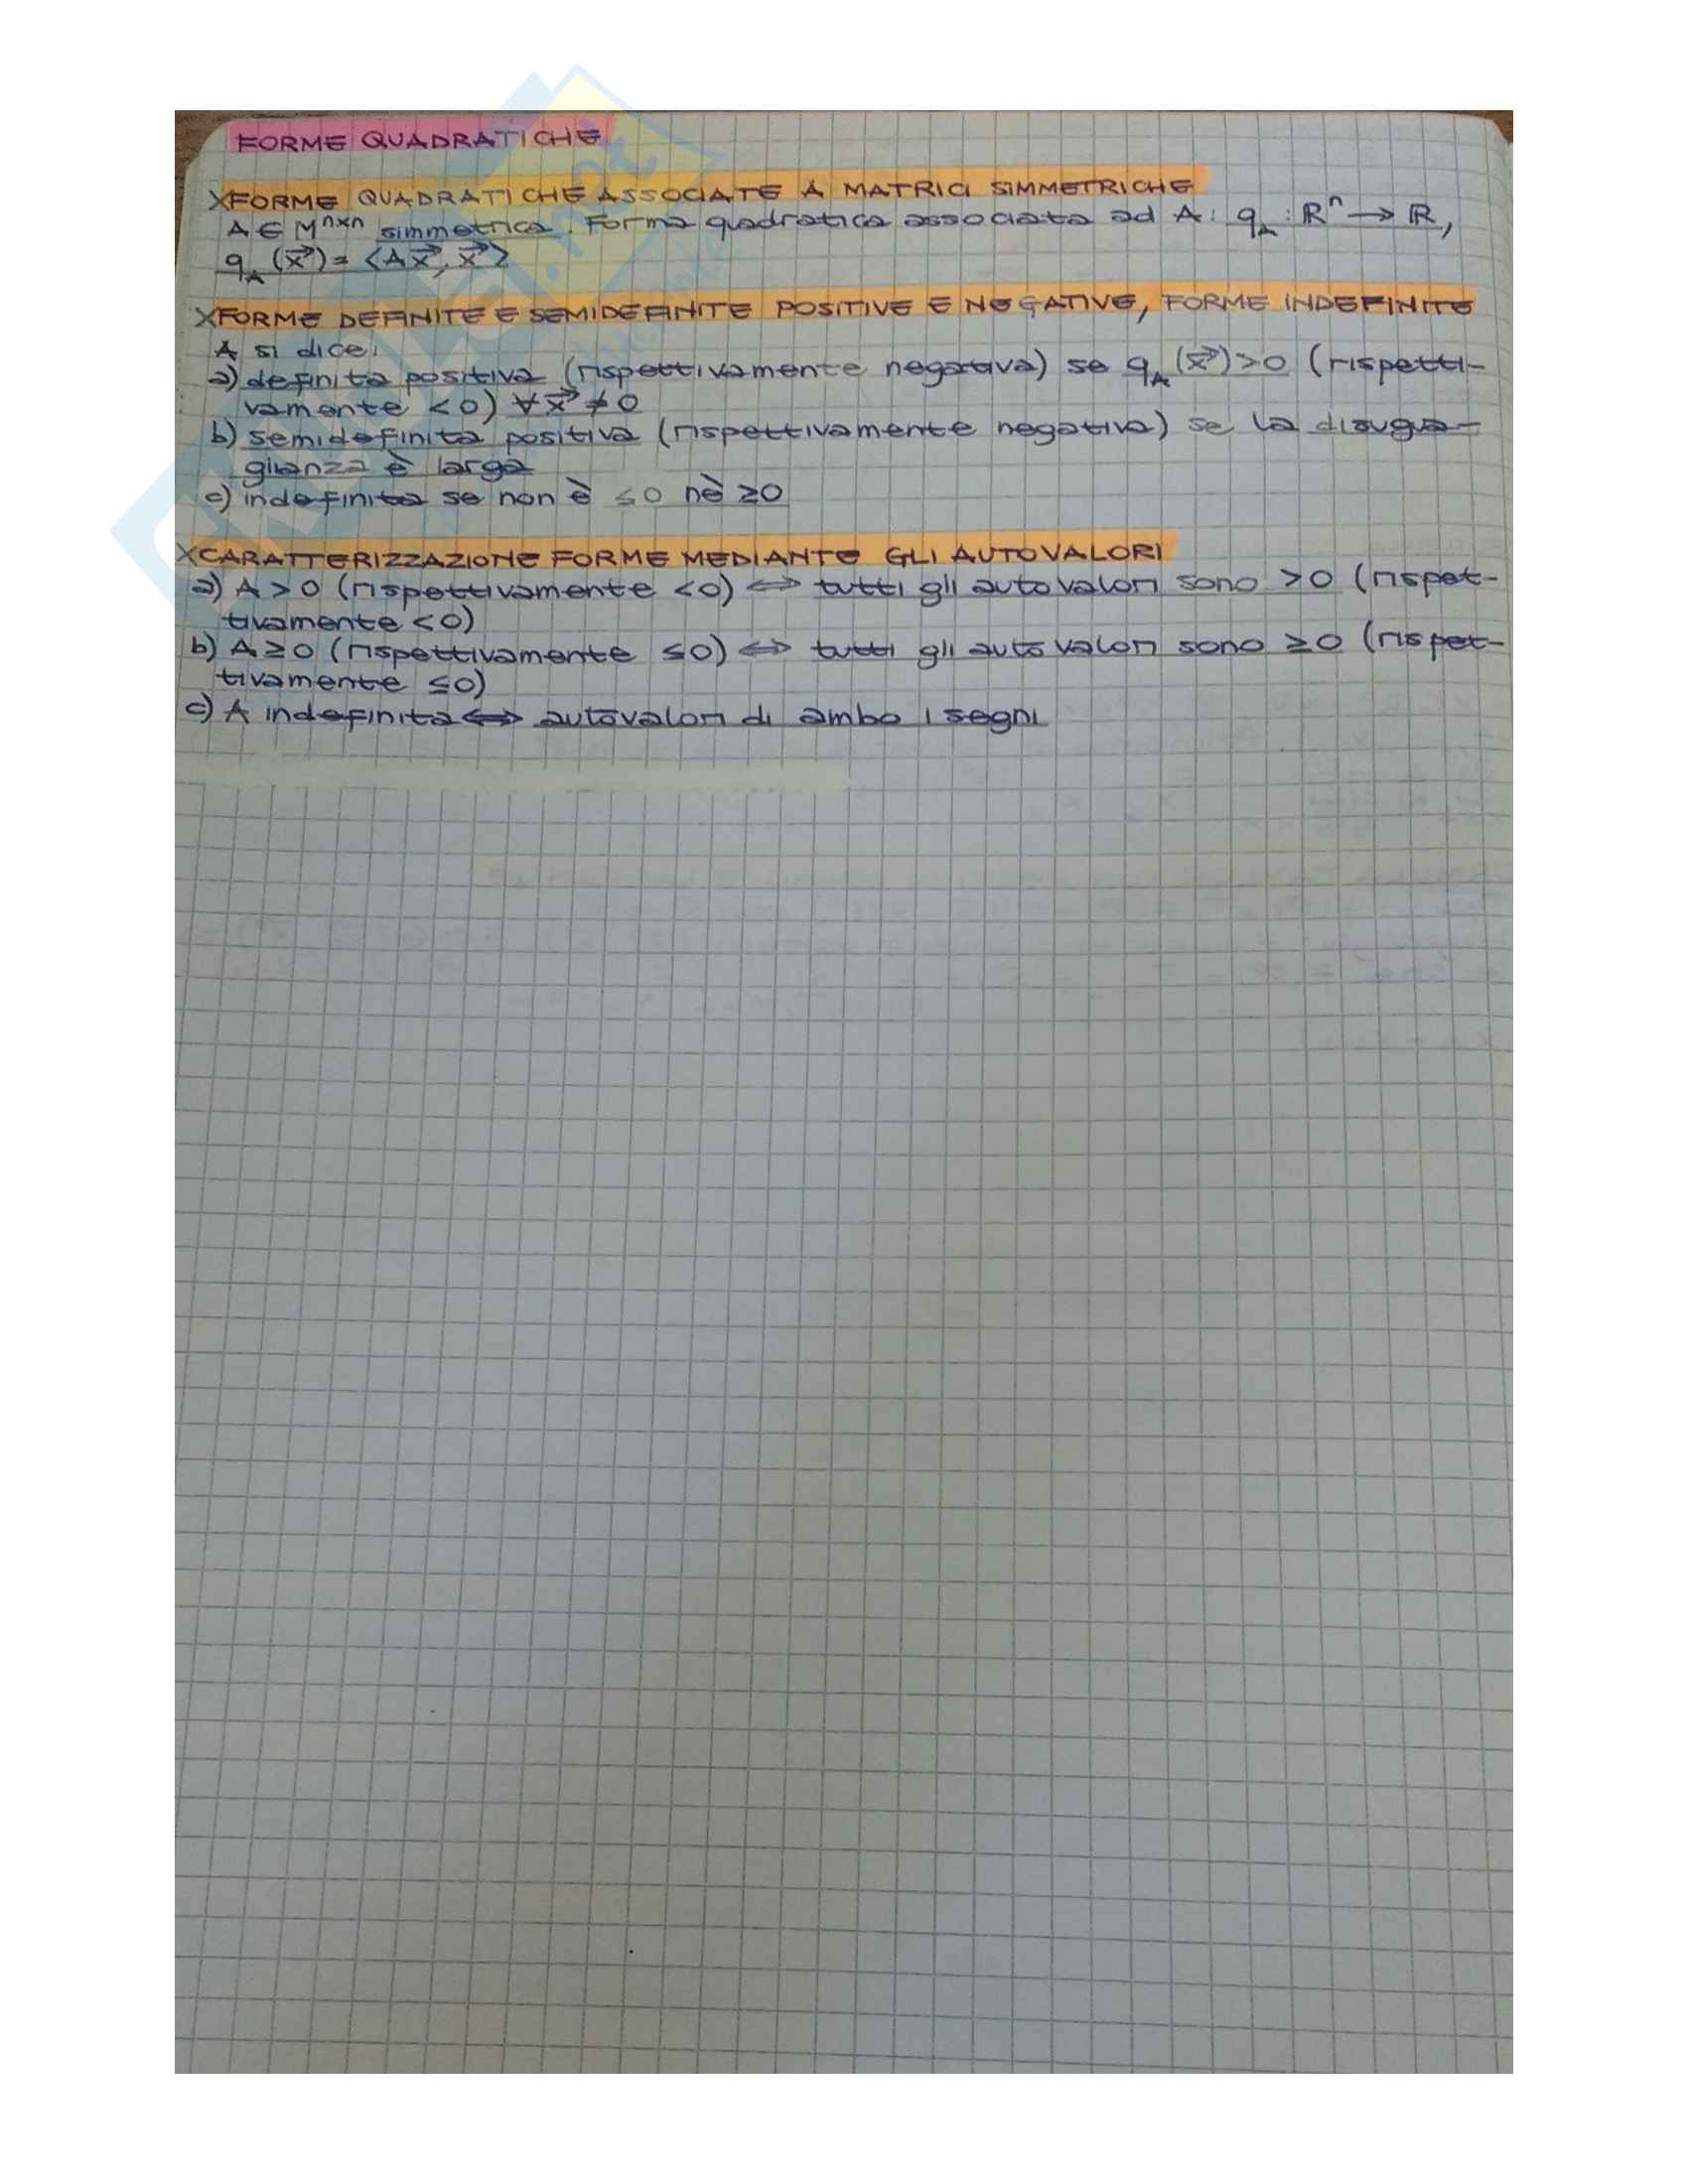 FORME QUADRATICHE
XFORME QUADRATICHE ASSOCIATE A MATRICI SIMMETRICHE
A ∈ Mⁿˣⁿ simmetrica. Forma quadratica associata ad A: q_A : ℝⁿ → ℝ,
q_A(x⃗) = ⟨Ax⃗, x⃗⟩
XFORME DEFINITE E SEMIDEFINITE POSITIVE E NEGATIVE, FORME INDEFINITE
A si dice:
a) definita positiva (rispettivamente negativa) se q_A(x⃗)>0 (rispetti-
vamente <0) ∀x⃗ ≠ 0
b) semidefinita positiva (rispettivamente negativa) se la disugua-
glianza è larga
c) indefinita se non è ≤0 nè ≥0
XCARATTERIZZAZIONE FORME MEDIANTE GLI AUTOVALORI
a) A>0 (rispettivamente <0) ⟺ tutti gli autovalori sono >0 (rispet-
tivamente <0)
b) A≥0 (rispettivamente ≤0) ⟺ tutti gli autovalori sono ≥0 (rispet-
tivamente ≤0)
c) A indefinita ⟺ autovalori di ambo i segni